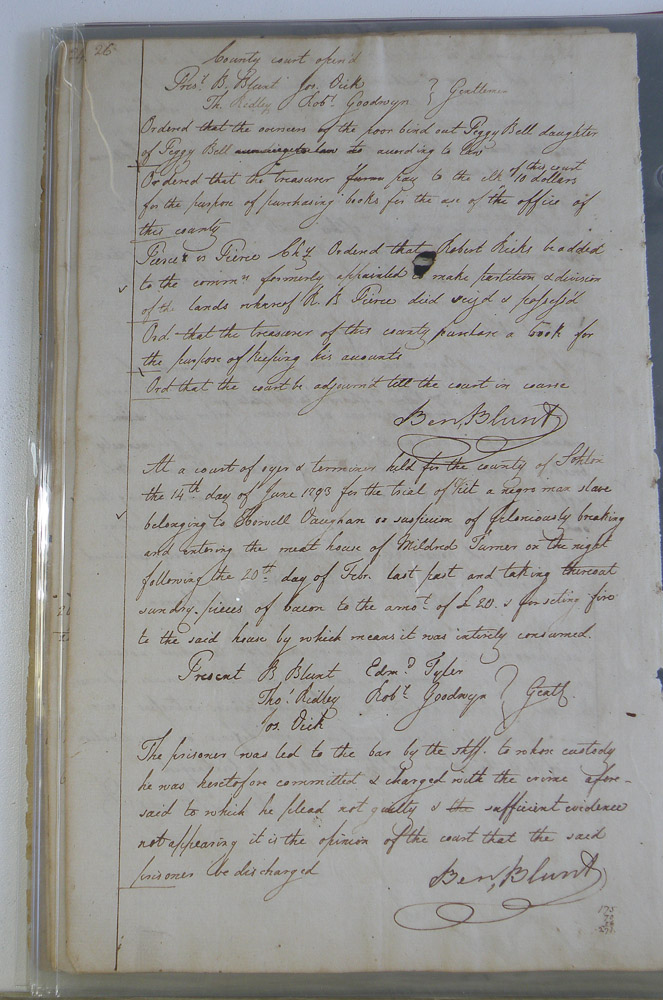 26
County court open'd
Pres.t B. Blunt Jos. Dick } Gentlemen
Th. Ridley Rob.t Goodwyn
Ordered that the overseers of the poor bind out Peggy Bell daughter
of Peggy Bell according to law
of this court
Ordered that the treasurer pay to the clk 10 dollars
for the purpose of purchasing books for the use of the office of
this county
Pierce vs Pierce Chy Ordered that Robert Ricks be added
to the commrs formerly appointed to make partition & division
of the lands whereof R. B. Pierce died seiz'd & possess'd
Ord that the treasurer of this county purchase a book for
the purpose of keeping his accounts
Ord that the court be adjourn'd till the court in course
Ben, Blunt
At a court of oyer & terminer held for the county of Sohton
the 14th day of June 1793 for the trial of Kitt a negro man slave
belonging to Howell Vaughan on suspicion of feloniously breaking
and entering the meat house of Mildred Turner on the night
following the 20th day of Febr. last past and taking thereout
sundry pieces of bacon to the amo.t of £20. & for seting fire
to the said house by which means it was intirely consumed.
Present B Blunt Edm.d Tyler
Tho.s Ridley Rob.t Goodwyn } Gentl.
Jos. Dick
The prisoner was led to the bar by the shff. to whose custody
he was heretofore committed & charged with the crime afore-
said to which he plead not guilty & the sufficient evidence
not appearing it is the opinion of the court that the said
prisoner be discharged
Ben, Blunt